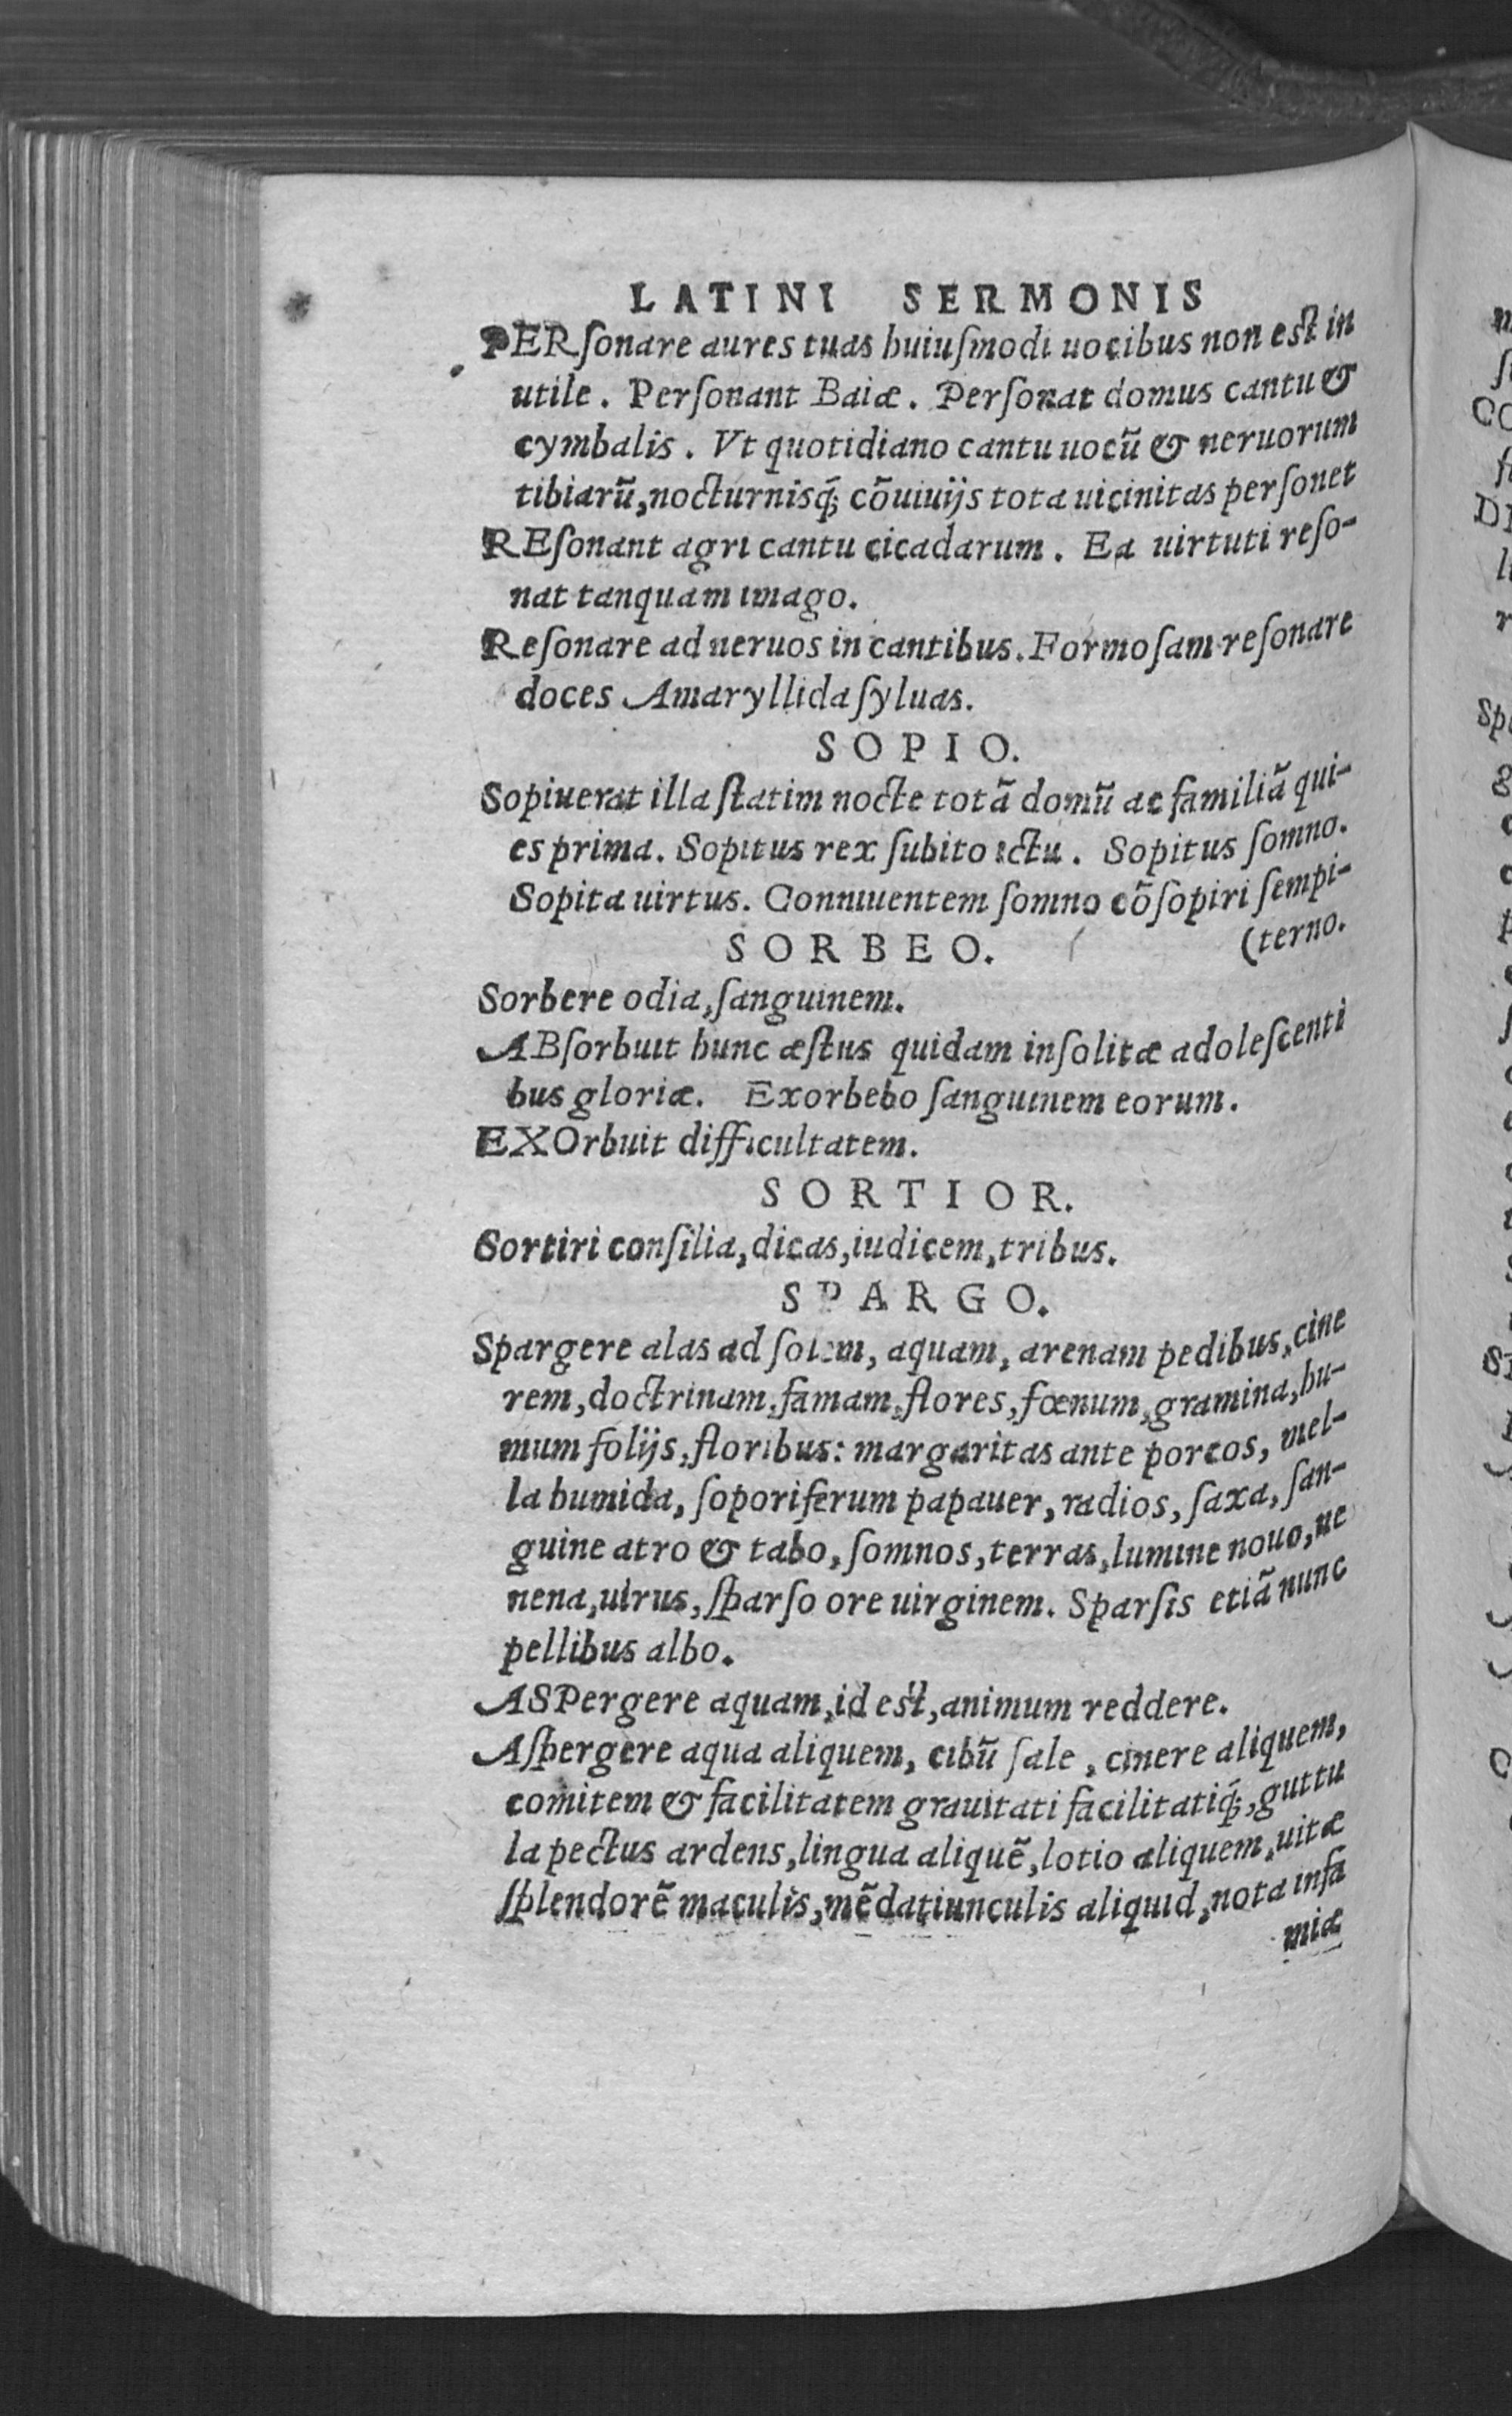 LATINI SERMONIS
PERſonare aures tuas huiuſmodi uocibus non est in
utile. Perſonant Baiæ. Perſonat domus cantu &
cymbalis. Vt quotidiano cantu uocū & neruorum
tibiarū, nocturnisq́; cōuiuijs tota uicinitas perſonet
REſonant agri cantu cicadarum. Ea uirtuti reſo-
nat tanquam imago.
Reſonare ad neruos in cantibus. Formoſam reſonare
doces Amaryllida ſyluas.
SOPIO.
Sopiuerat illa ſtatim nocte totā domū ac familiā qui-
es prima. Sopitus rex ſubito ictu. Sopitus ſomno.
Sopita uirtus. Conniuentem ſomno cōſopiri ſempi-
SORBEO. (terno.
Sorbere odia, ſanguinem.
ABſorbuit hunc æſtus quidam inſolitæ adoleſcenti
bus gloriæ. Exorbebo ſanguinem eorum.
EXOrbuit difficultatem.
SORTIOR.
Sortiri conſilia, dicas, iudicem, tribus.
SPARGO.
Spargere alas ad ſolem, aquam, arenam pedibus, cine
rem, doctrinam, famam, flores, fœnum, gramina, hu-
mum folijs, floribus: margaritas ante porcos, mel-
la humida, ſoporiferum papauer, radios, ſaxa, ſan-
guine atro & tabo, ſomnos, terras, lumine nouo, ue
nena, uirus, ſparſo ore uirginem. Sparſis etiā nunc
pellibus albo.
ASPergere aquam, id est, animum reddere.
Aſpergere aqua aliquem, cibū ſale, cinere aliquem,
comitem & facilitatem grauitati facilitatiq́;, guttu
la pectus ardens, lingua aliquē, lotio aliquem, uitæ
ſplendorē maculis, mēdatiunculis aliquid, nota infa
miæ